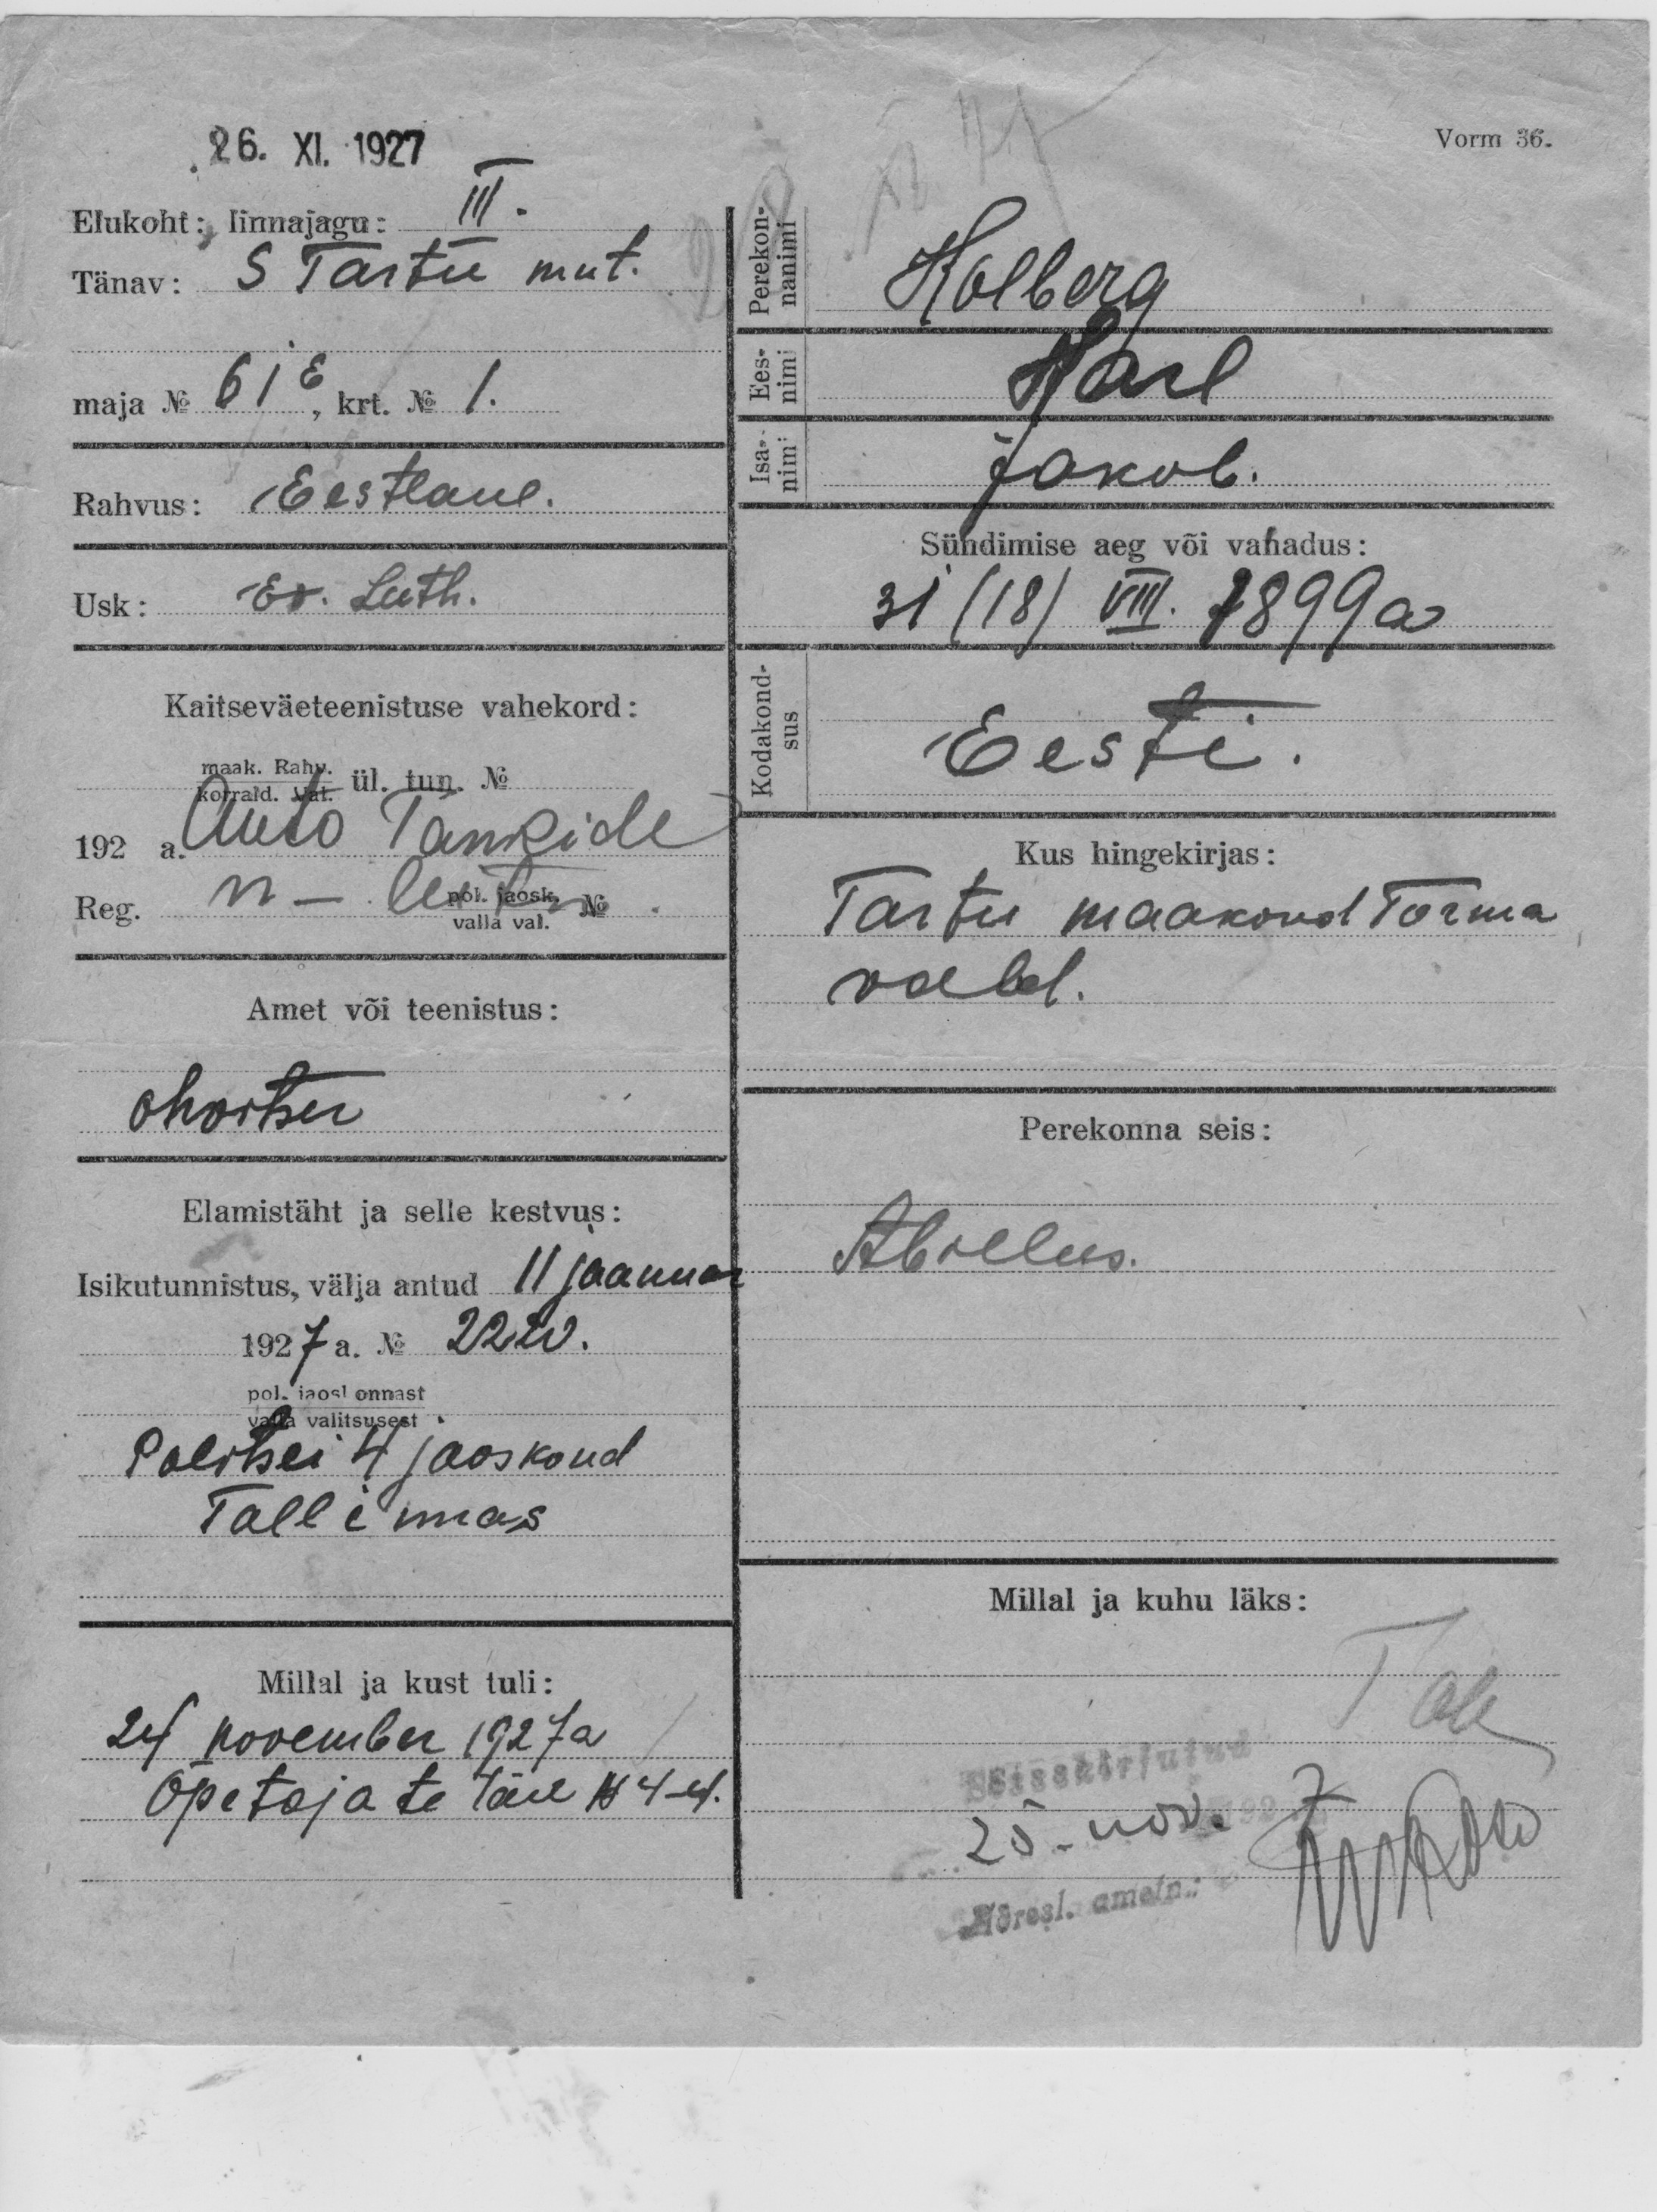 26. XI. 1927
Vorm 36.
Elukoht: linnajagu: III.
Tänav: S Tartu mnt.
maja № 61 E, krt. № 1.
Rahvus: Eestlane.
Usk: Ev. Luth.
Kaitseväeteenistuse vahekord:
maak. Rahv.
korrald. Val. ül. tun. №
192 a. Auto Tankide
Reg. n - pol. jaosk. №
valla val.
Amet või teenistus:
ohvitser
Elamistäht ja selle kestvus:
Isikutunnistus, välja antud 11 jaanuar
1927 a. № 2220.
pol. jaoskonnast
valla valitsusest
Politsei 4 jaoskond
Tallinnas
Millal ja kust tuli:
24 november 1927 a
Õpetajate tän № 4-4.
Perekon-
nanimi
Holberg
Ees-
nimi
Karl
Isa-
nimi
Jakob.
Sündimise aeg või vanadus:
31 (18) VIII. 1899 a
Kodakond-
sus
Eesti.
Kus hingekirjas:
Tartu maakond Torma
vald.
Perekonna seis:
Abielus.
Millal ja kuhu läks:
Sissekirjutud
25. nov. 1927
Aadresl. ametn.: